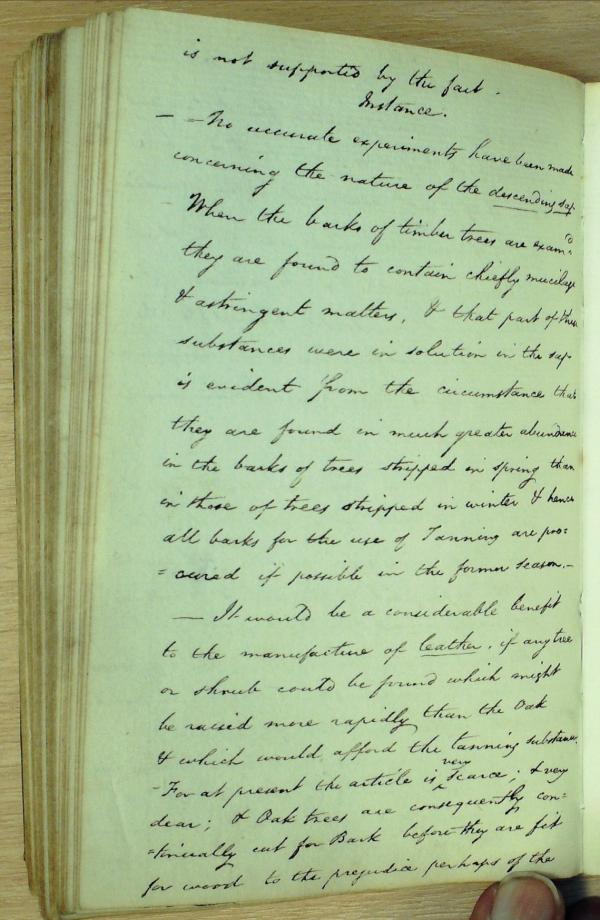 is not supported by the fact.
Instance.
— – No accurate experiments have been made
concerning the nature of the descending sap.
When the barks of timber trees are exam.d
they are found to contain chiefly mucilage
& astringent matters, & that part of these
substances were in solution in the sap
is evident from the circumstance that
they are found in much greater abundance
in the barks of trees stripped in spring than
in those of trees stripped in winter & hence
all barks for the use of Tanning are pro=
=cured if possible in the former season.–
— It would be a considerable benefit
to the manufacture of leather, if any tree
or shrub could be found which might
be raised more rapidly than the Oak
& which would afford the tanning substance.
– For at present the article is very scarce; & very
dear; & Oak trees are consequently con=
=tinually cut for Bark before they are fit
for wood to the prejudice perhaps of the